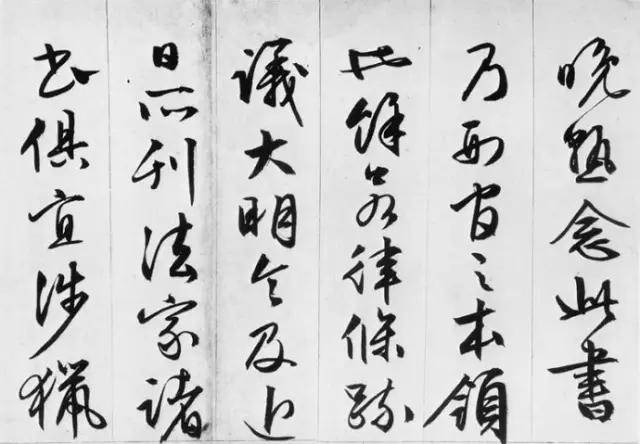 晚熟念此書
乃刑官之本領
此餘若律條疏
議大明令及近
日所刊法家諸
書俱宜涉獵